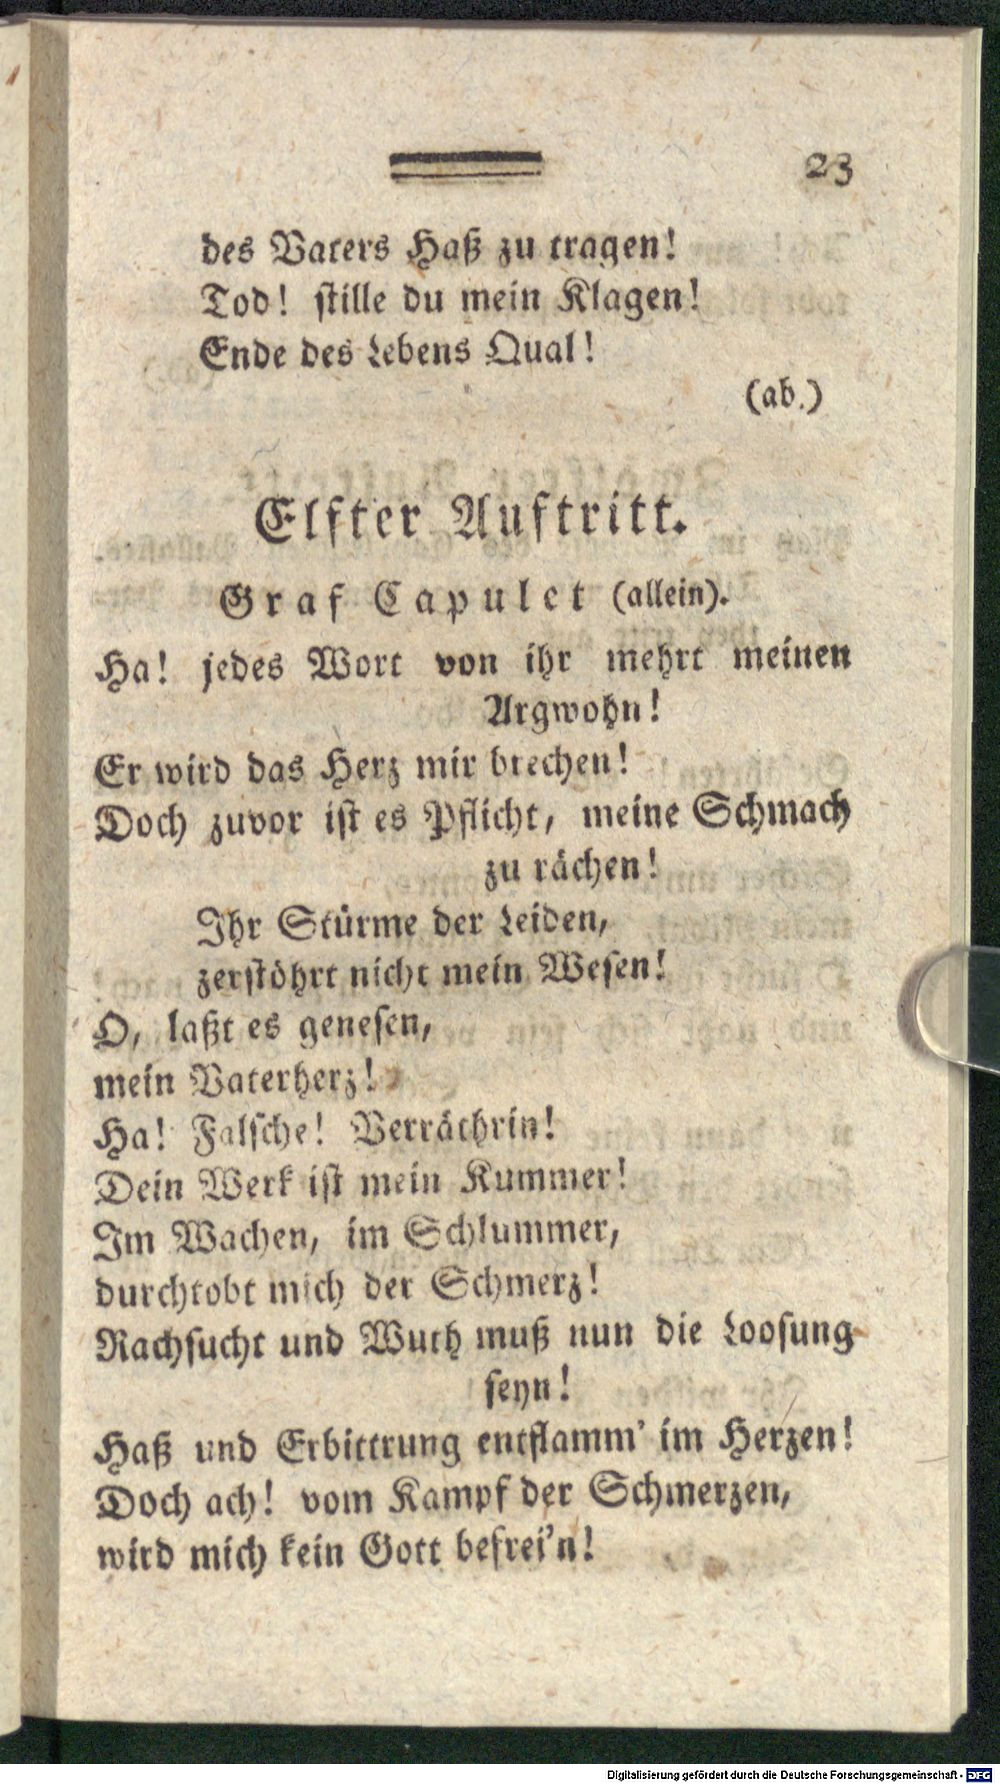 23
des Vaters Haß zu tragen!
Tod! stille du mein Klagen!
Ende des Lebens Qual!
(ab.)
Elfter Auftritt.
Graf Capulet (allein).
Ha! jedes Wort von ihr mehrt meinen
Argwohn!
Er wird das Herz mir brechen!
Doch zuvor ist es Pflicht, meine Schmach
zu rächen!
Ihr Stürme der Leiden,
zerstöhrt nicht mein Wesen!
O, laßt es genesen,
mein Vaterherz!
Ha! Falsche! Verräthrin!
Dein Werk ist mein Kummer!
Im Wachen, im Schlummer,
durchtobt mich der Schmerz!
Rachsucht und Wuth muß nun die Loosung
seyn!
Haß und Erbittrung entflamm' im Herzen!
Doch ach! vom Kampf der Schmerzen,
wird mich kein Gott befrei'n!
Digitalisierung gefördert durch die Deutsche Forschungsgemeinschaft - DFG